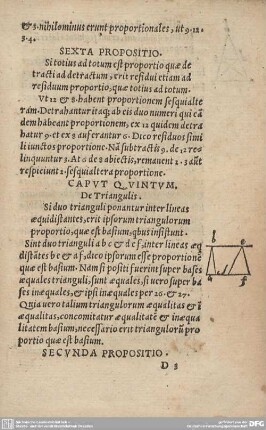 & 3. nihilominus erunt proportionales, ut 9. 12.
3. 4.
SEXTA PROPOSITIO.
Si totius ad totum est proportio quæ de
tracti ad detractum, erit residui etiam ad
residuum proportio, quæ totius ad totum.
Vt 12 & 8. habent proportionem sesquialte
ram. Detrahantur itaq; ab eis duo numeri qui eā
dem habeant proportionem, ex 12 quidem detra
hatur 9. et ex 8 auferantur 6. Dico residuos simi
li iunctos proportione. Nā subtractis 9. de 12 re
linquuntur 3. At 6 de 8 abiectis, remanent 2. 3 aūt
respiciunt 2. sesquialtera proportione.
CAPVT QVINTVM.
De Triangulis.
Si duo trianguli ponantur inter lineas
æquidistantes, erit ipsorum triangulorum
proportio, quæ est basium, qbus insistunt.
Sint duo trianguli a b c & d e f, inter lineas æq
distātes b e & a f, dico ipsorum esse proportionē
quæ est basium. Nam si positi fuerint super bases
æquales trianguli, sunt æquales, si uero super ba
ses inæquales, & ipsi inæquales per 26. & 27.
Quia uero talium triangulorum æqualitas & ī
æqualitas, concomitatur æqualitatē & inæqua
litatem basium, necessario erit triangulorū pro
portio quæ est basium.
b e
a f
SECVNDA PROPOSITIO.
D 3